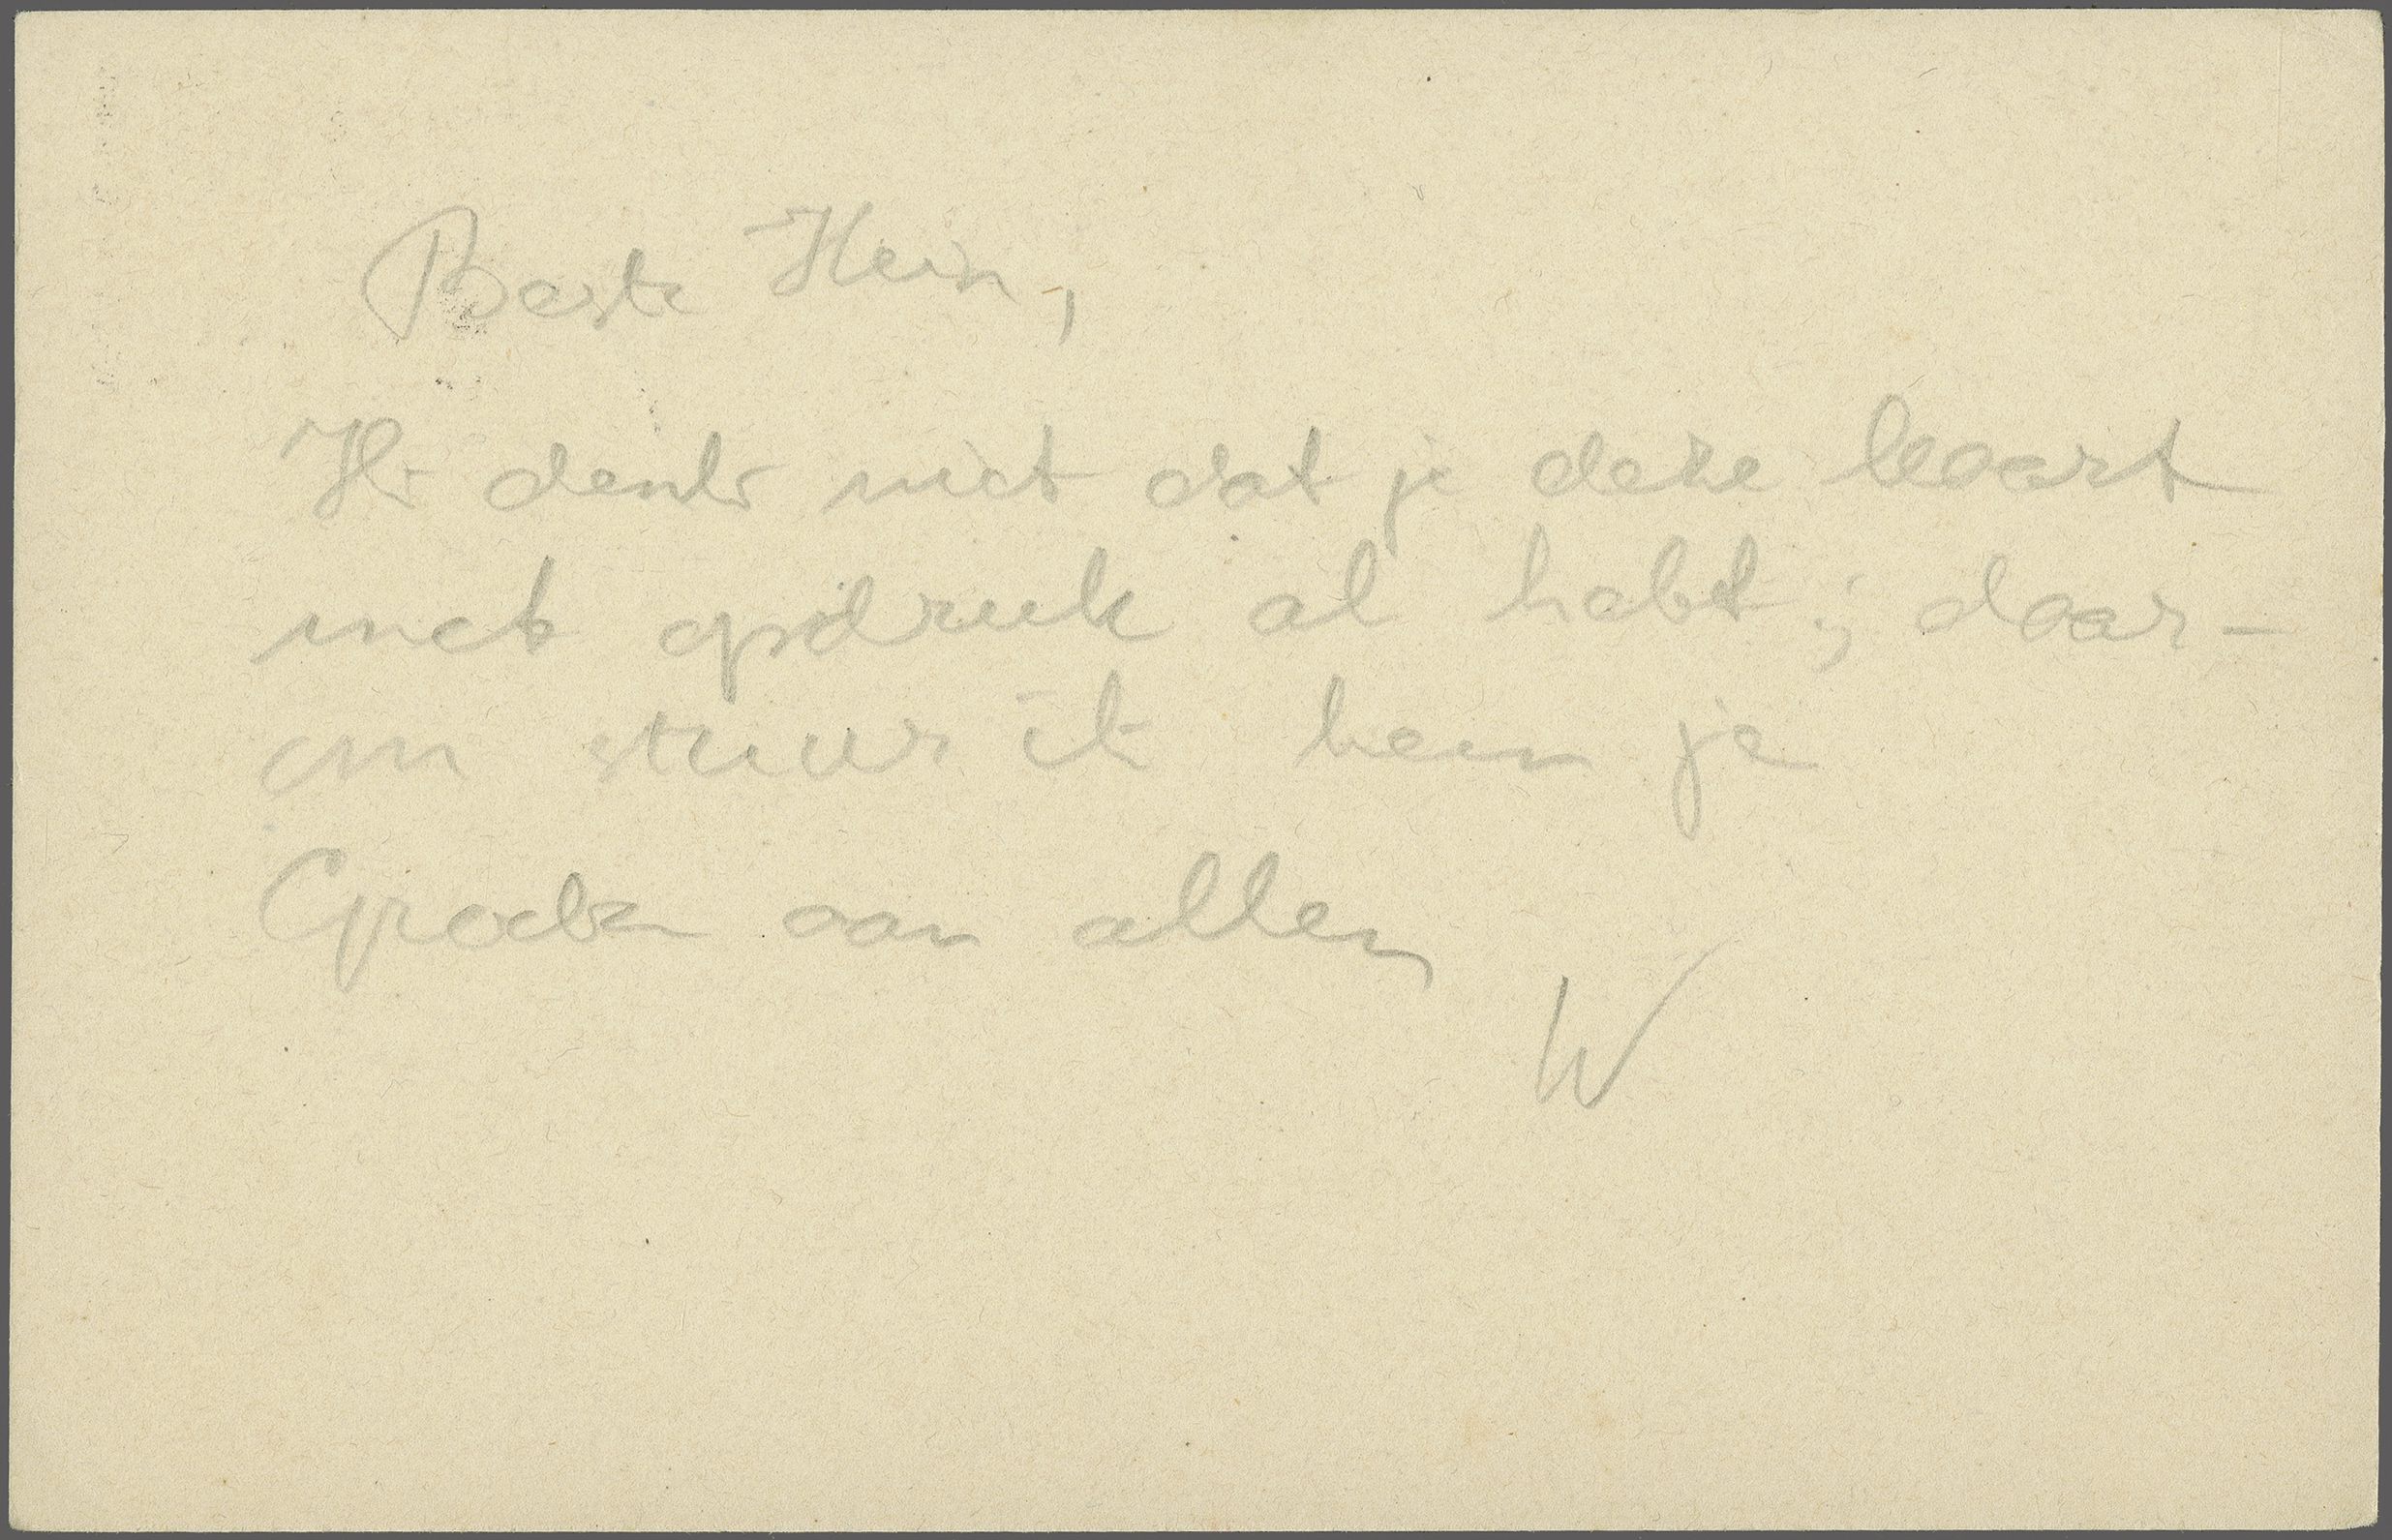 Beste Hein,
Ik denk niet dat je deze kaart
met opdruk al hebt; daar-
om stuur ik hem je
Groeten aan allen
W